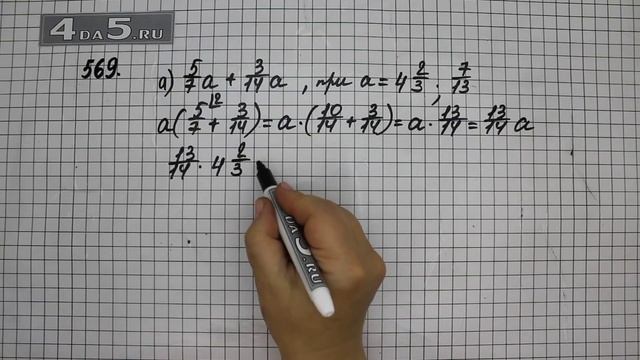 4DA5.RU
569.
а) 5/7 a + 3/14 a , при a = 4 2/3 ; 7/13
a(5/7 \2 + 3/14) = a · (10/14 + 3/14) = a · 13/14 = 13/14 a
13/14 · 4 2/3
4DA5.RU